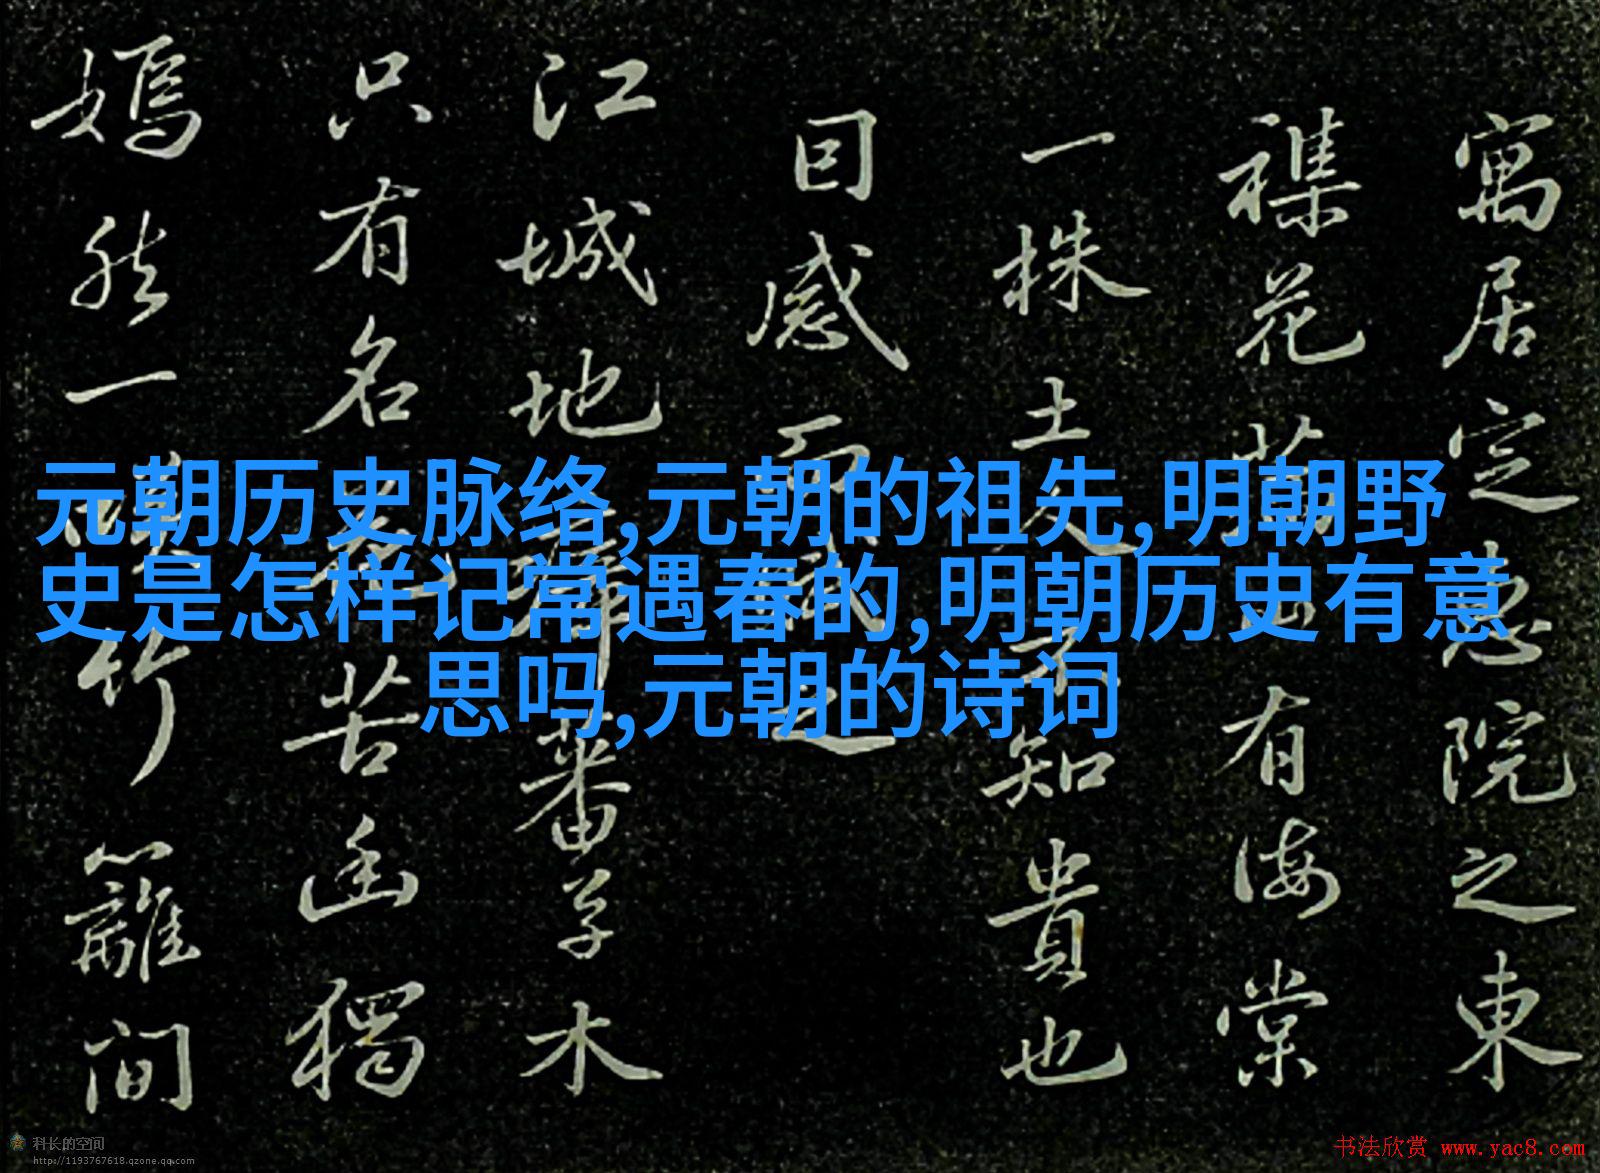 寓居定惠院之東
襍花滿山有海棠
一株土人不知貴也
因感而賦之
江城地瘴蕃草木
只有名花苦幽獨
嫣然一咲竹籬間
元朝历史脉络,元朝的祖先,明朝野
史是怎样记常遇春的,明朝历史有意
思吗,元朝的诗词
科长的空间
http://1193767618.qzone.qq.com
书法欣赏 www.yac8.com